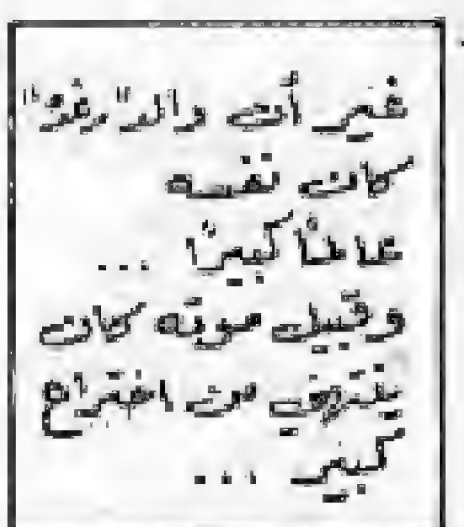 غير أن والد "رفرو"
كان نفسه
عالماً كبيراً ...
وقبيل موته كان
يقترب من اختراع
كبير ...